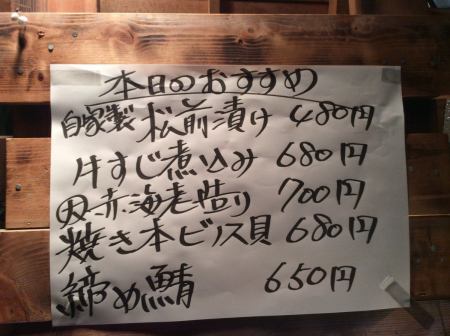 本日のおすすめ
自家製 松前漬け 480円
牛すじ煮込み 680円
赤海老造り 700円
焼き本ビノス貝 680円
締め鯖 650円